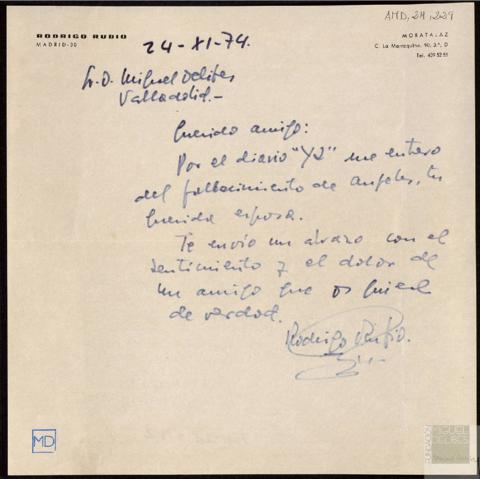 AMD, 24, 229
RODRIGO RUBIO
MADRID-30
MORATALAZ
C. La Marroquina, 90, 3.º, D
Tel. 439 52 51
24-XI-74.
Sr. D. Miguel Delibes
Valladolid.-
Querido amigo:
Por el diario "YA" me entero
del fallecimiento de Angeles, tu
querida esposa.
Te envío un abrazo con el
sentimiento y el dolor de
un amigo que os quiere
de verdad.
Rodrigo Rubio.
MD
FUNDACIÓN
MIGUEL
DELIBES